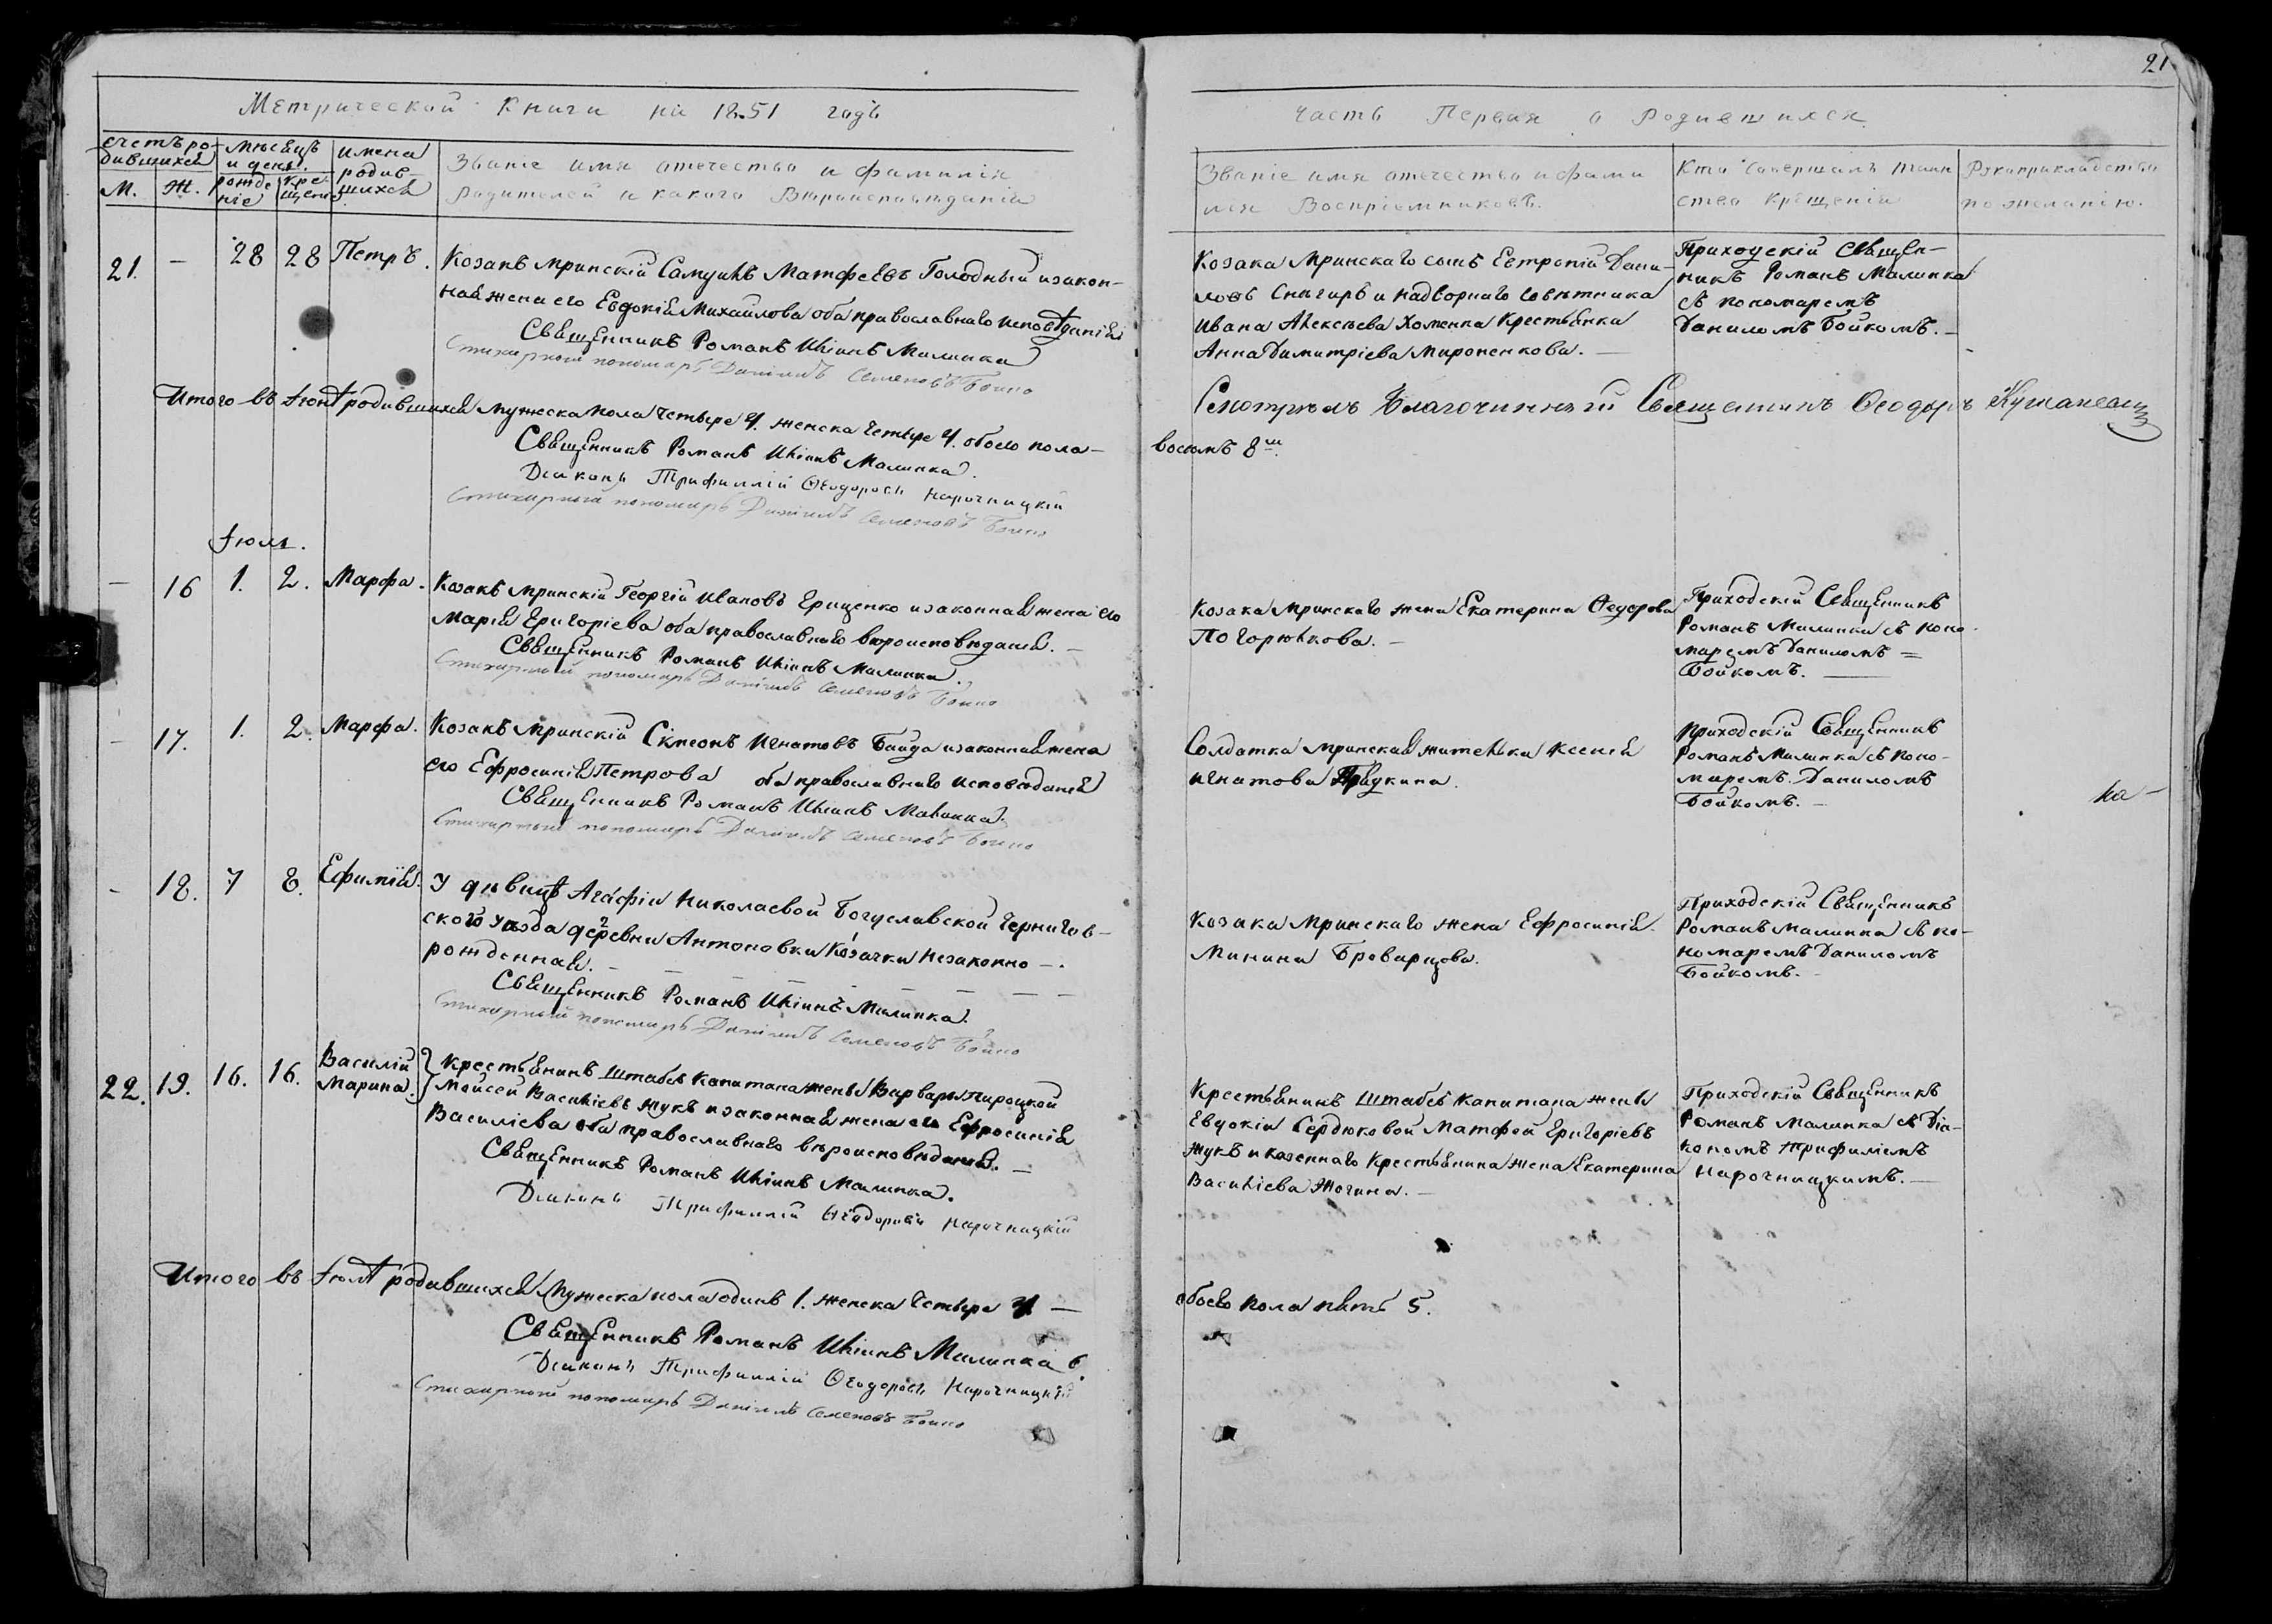 21
Метрической Книги на 1851 годъ
Часть Первая о Родившихся
счетъ ро-
дившихся
М.
Ж.
мѣсяцъ
и день
рожде
ніе
кре-
щеніе
имена
родив-
шихся
Званіе имя отечество и фамилія
родителей и какого Вѣроисповѣданія
Званіе имя отечество и фами
лія Воспріемниковъ.
Кто совершалъ таин
ство Крещенія
Рукоприкладство
по желанію.
21. - 28 28 Петръ.
Козакъ мринскій Самуилъ Матфеевъ Голодный и закон-
ная жена его Евдокія Михайлова оба православнаго исповѣданія
Священникъ Романъ Иліинъ Малинка
Стихарный пономарь Даніилъ Семеновъ Бойко
Козака Мринскаго сынъ Евтропій Дани-
ловъ Снигирь и надворнаго совѣтника
Ивана Алексѣева Хоменка крестьянка
Анна Димитріева Мироненкова. -
Приходскій Священ-
никъ Романъ Малинка
съ пономаремъ
Даниломъ Бойкомъ. -
Итого въ Іюнѣ родившихся мужеска пола четыре 4. женска четыре 4. обоего пола -
восемь 8ш.
Священникъ Романъ Иліинъ Малинка.
Діаконъ Трифиллій Ѳеодоровъ Нарочницкій
Стихарный пономарь Даніилъ Семеновъ Бойко
Смотрѣлъ Благочинный Священникъ Ѳеодоръ
Іюль.
- 16 1. 2. Марфа.
Козакъ мринскій Георгій Ивановъ Грищенко и законная жена его
Марія Григоріева оба православнаго вѣроисповѣданія. -
Священникъ Романъ Иліинъ Малинка.
Стихарный пономарь Даніилъ Семеновъ Бойко
Козака Мринскаго жена Екатерина Ѳедорова
Погорѣлкова. -
Приходскій Священникъ
Романъ Малинка съ поно-
маремъ Даниломъ =
Бойкомъ.
- 17. 1. 2. Марфа.
Козакъ мринскій Симеонъ Игнатовъ Байда и законная жена
его Ефросинія Петрова оба православнаго исповѣданія
Священникъ Романъ Иліинъ Малинка.
Стихарный пономарь Даніилъ Семеновъ Бойко
Солдатка мринская жителька Ксенія
Игнатова
Приходскій Священникъ
Романъ Малинка съ поно-
маремъ Даниломъ
Бойкомъ. -
ка -
- 18. 7 8. Ефимія.
У дѣвицѣ Агафіи Николаевой Богуславской Чернигов-
ского уѣзда деревни Антоновки Козачки незаконно -
рожденная. -
Священникъ Романъ Иліинъ Малинка.
Стихарный пономарь Даніилъ Семеновъ Бойко
Козака Мринскаго жена Ефросинія
Минина Броварцова.
Приходскій Священникъ
Романъ Малинка съ по-
номаремъ Даниломъ
Бойкомъ. -
22. 19. 16. 16. Василій
Марина.
Крестьянинъ штабсъ капитана жены Варвары Пироцкой
Мойсей Василіевъ Жукъ и законная жена его Ефросинія
Василіева оба православнаго вѣроисповѣданія. -
Священникъ Романъ Иліинъ Малинка.
Діаконъ Трифиллій Ѳеодоровъ Нарочницкій
Крестьянинъ штабсъ капитана жены
Евдокіи Сердюковой Матфей Григоріевъ
Жукъ и казеннаго крестьянина жена Екатерина
Василіева Жогина. -
Приходскій Священникъ
Романъ Малинка съ Діа-
кономъ Трифиліемъ
Нарочницкимъ. -
Итого въ Іюлѣ родившихся мужеска пола одинъ 1. женска четыре 4 -
обоего пола пять 5.
Священникъ Романъ Иліинъ Малинка
Діаконъ Трифиллій Ѳеодоровъ Нарочницкій
Стихарный пономарь Даніилъ Семеновъ Бойко